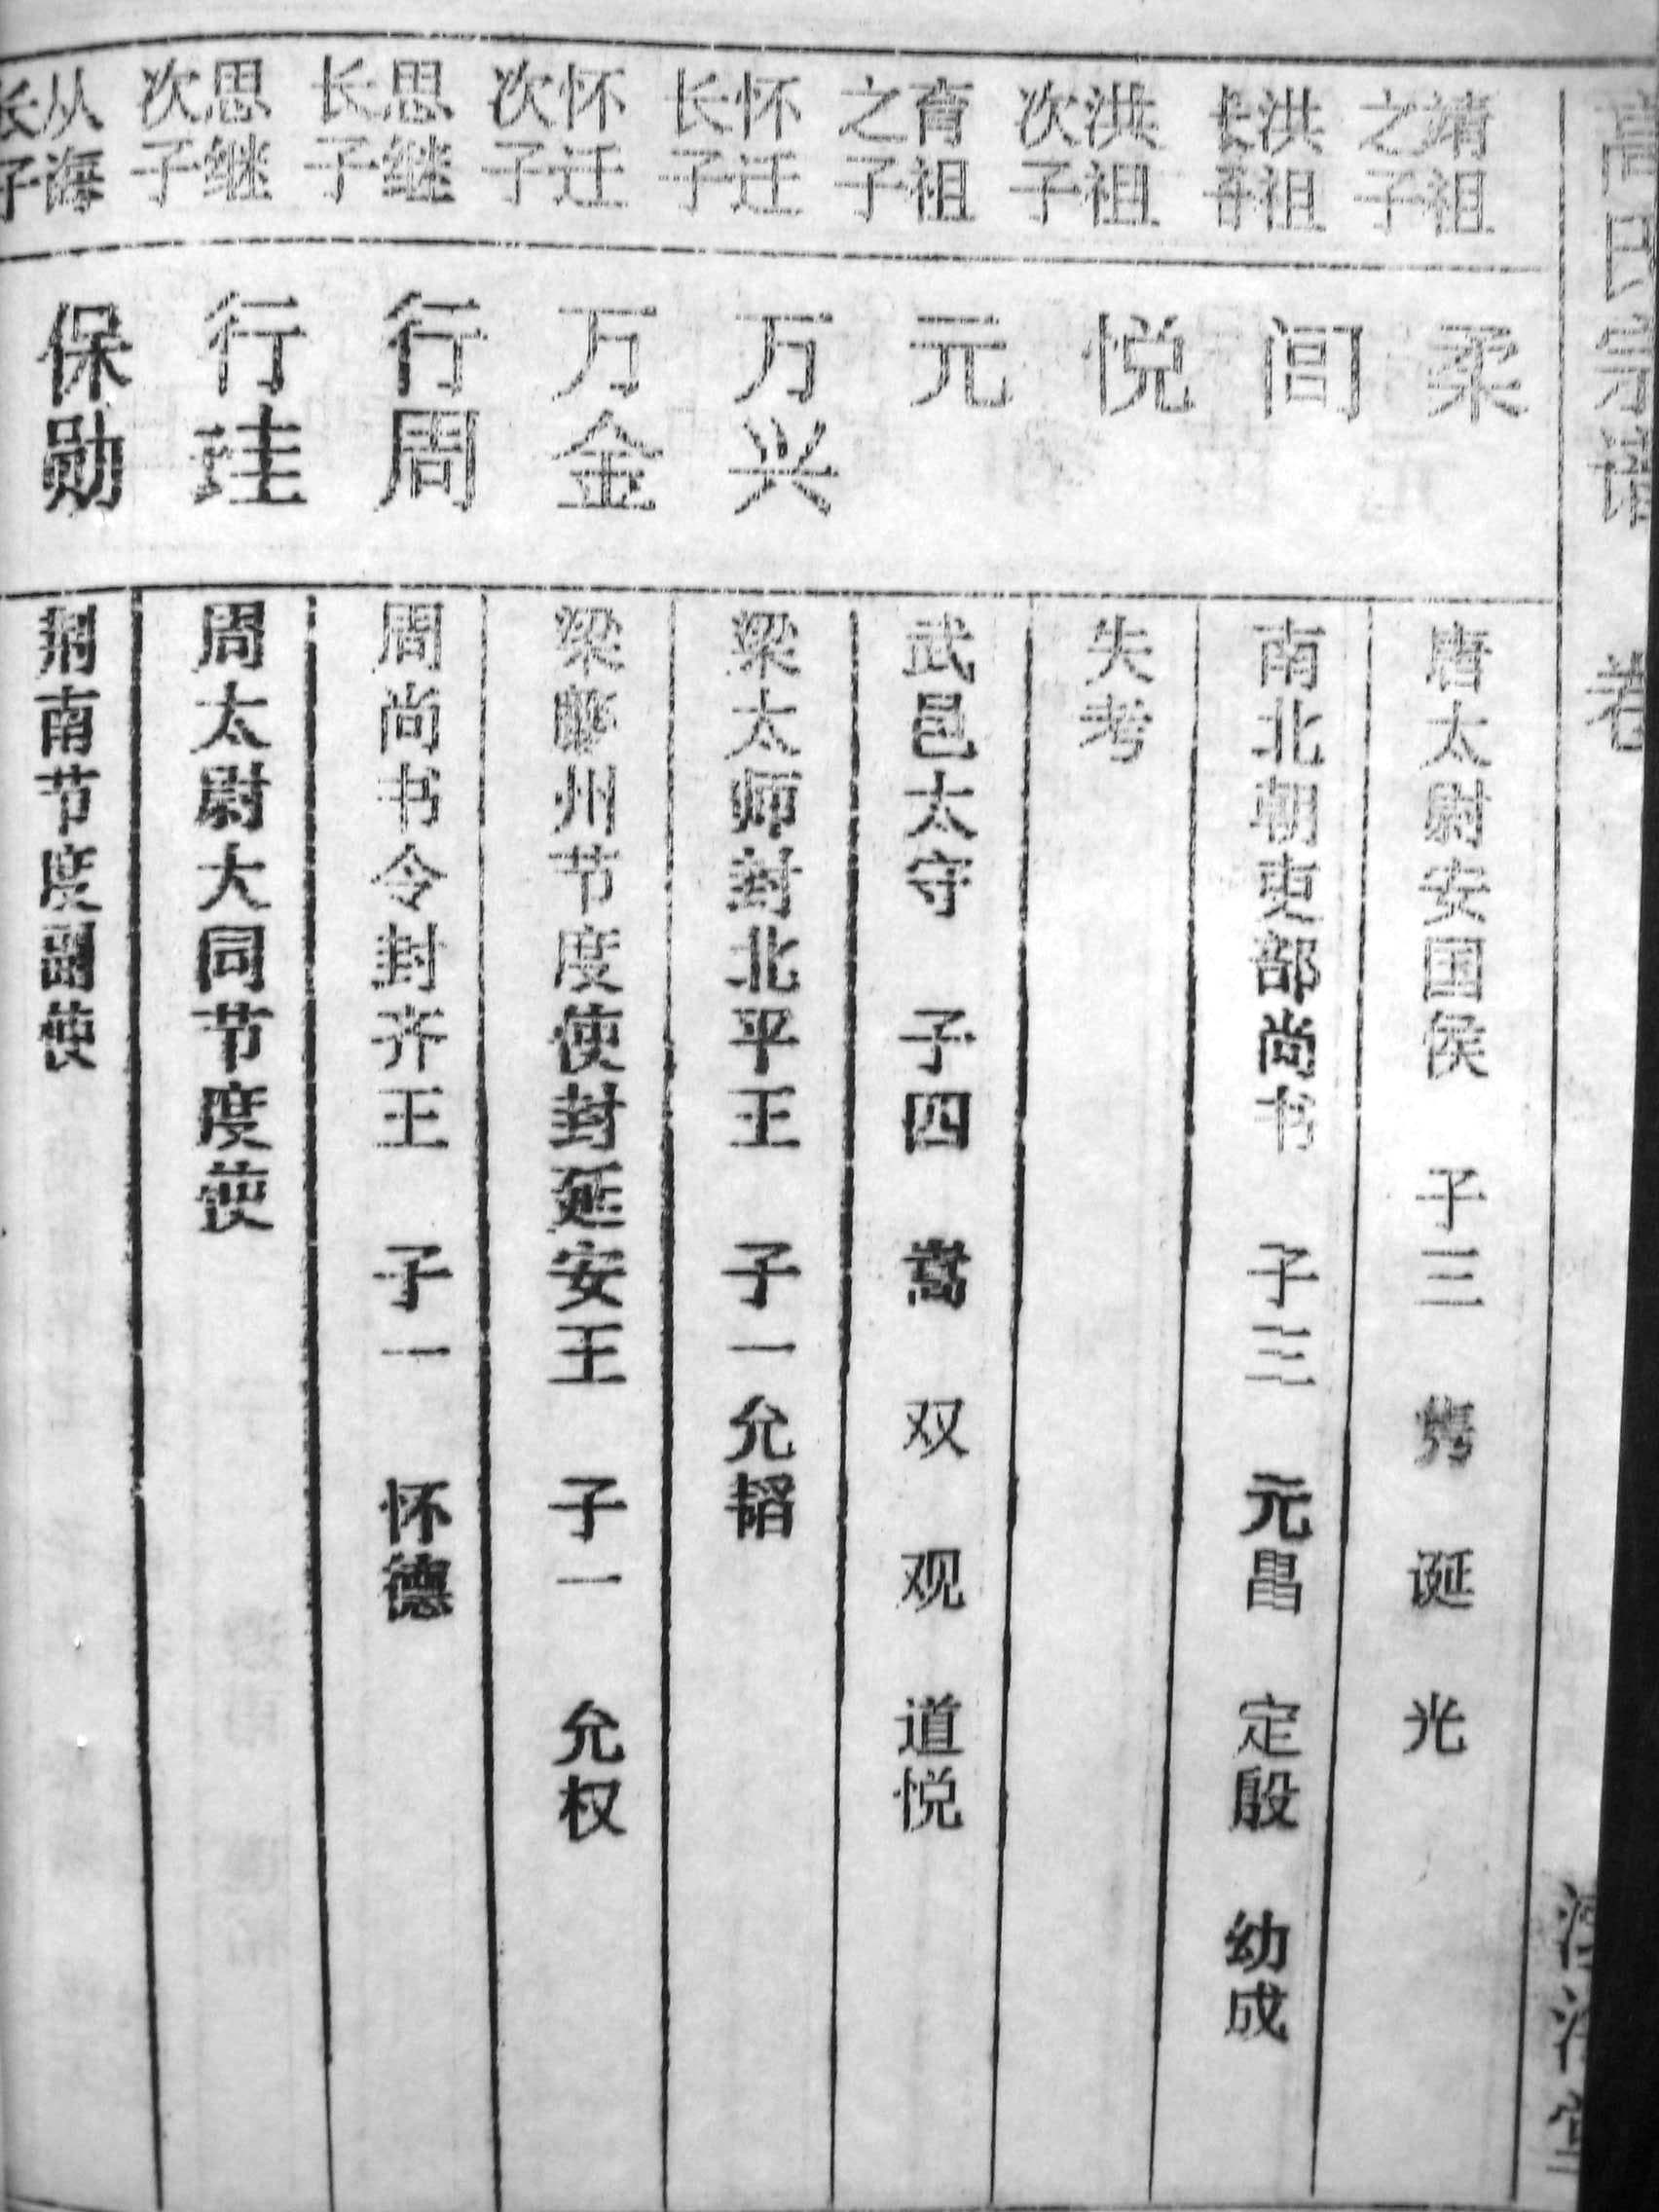 高氏宗谱 卷
靖祖之子
柔
唐太尉安国侯 子三 隽 诞 光
洪祖长子
闾
南北朝吏部尚书 子三 元昌 定殷 幼成
洪祖次子
悦
失考
育祖之子
元
武邑太守 子四 嵩 双 观 道悦
怀迁长子
万兴
梁太师封北平王 子一 允韬
怀迁次子
万金
梁 州节度使封延安王 子一 允权
思继长子
行周
周尚书令封齐王 子一 怀德
思继次子
行珪
周太尉大同节度使
从海长子
保勋
荆南节度副使